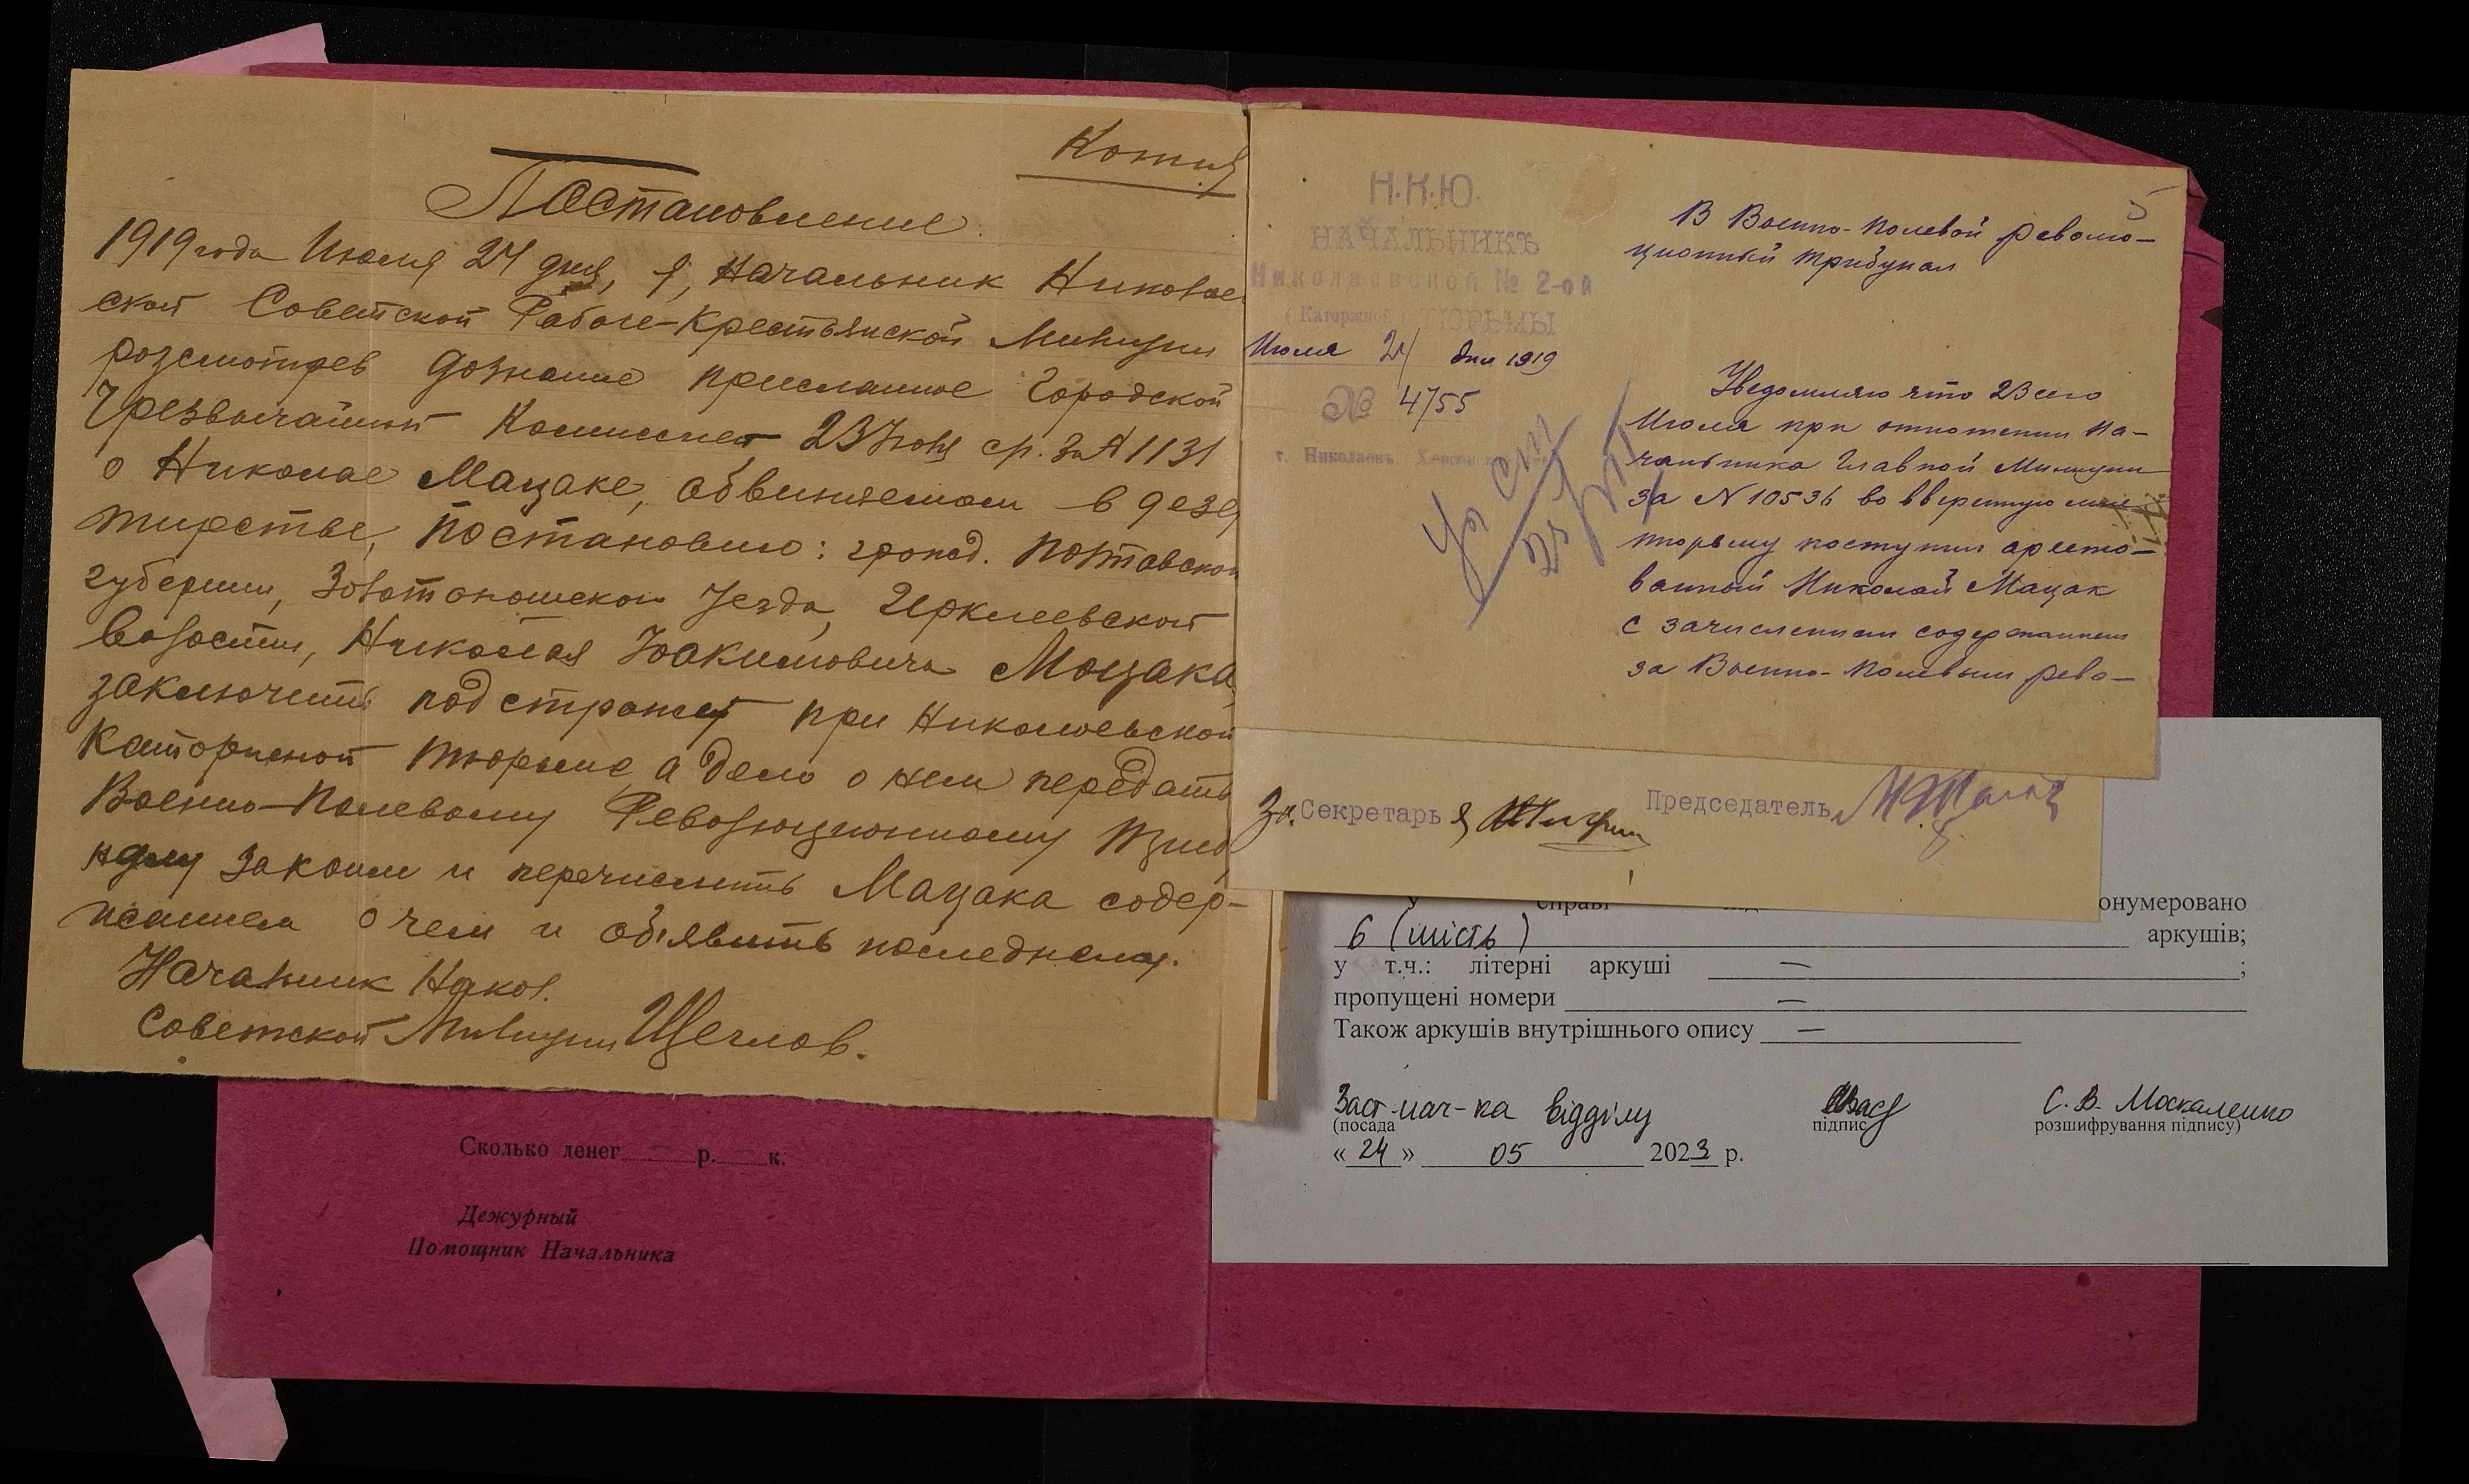 Копия
Постановление
1919 года Июля 24 дня, я, Начальник Николаев
ской Советской Рабоче-Крестьянской Милиции
розсмотрев дознание присланное Городской
Чрезвычайной Комиссией 23 Июля ср. за № 1131
о Николае Мацаке, обвиняемом в дезер
тирстве, постановил: гражд. Полтавской
губернии, Золотоношского Уезда, Иркլеевской
Волости, Николая Иоакимовича Мацака,
заключить под стражей при Николаевской
Каторжной тюрьме, а дело о нем передать
Военно-Полевому Революционному
закона и перечислить Мацака содер-
жанием о чем и об'явить последнему.
Начальник Никол.
Советской Милиции Щеглов.
Н.К.Ю.
НАЧАЛЬНИКЪ
Николаевской № 2-ой
(Каторжной) ТЮРЬМЫ
Июля 24 дня 1919
№ 4755
г. Николаевъ, Херсонск
5
В Военно-Полевой револю-
ционный трибунал
Уведомляю что 23 сего
Июля при отношении На-
чальника Главной Милиции
за N 10536 во вверенную мне
тюрьму поступил аресто-
ванный Николай Мацак
с зачислением содержанием
за Военно-Полевым рево-
За. Секретарь
Председатель
справі
онумеровано
6 (шість) аркушів;
у т.ч.: літерні аркуші — ;
пропущені номери —
Також аркушів внутрішнього опису —
Заст. нач-ка відділу
С. В. Москаленко
(посада
підпис
розшифрування підпису)
« 24 » 05 2023 р.
Сколько денег — р. — к.
Дежурный
Помощник Начальника